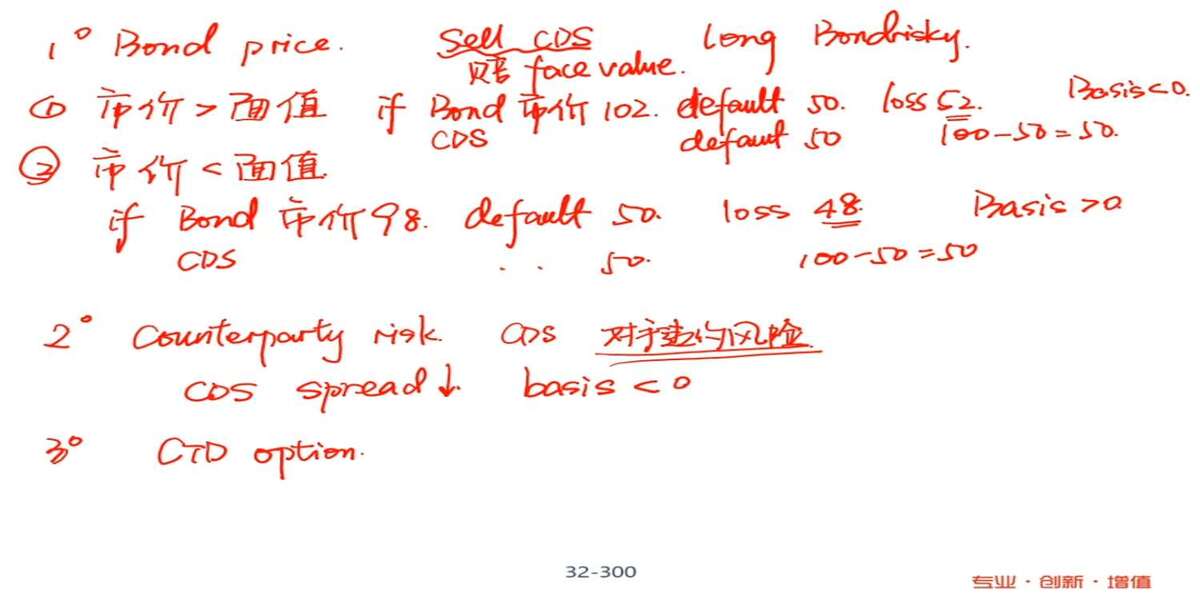 1° Bond price. Sell CDS long Bond risky.
赔 face value.
① 市价 > 面值 if Bond 市价 102. default 50. loss 52. Basis < 0.
CDS default 50 100 - 50 = 50.
② 市价 < 面值.
if Bond 市价 98. default 50. loss 48. Basis > 0
CDS .. 50. 100 - 50 = 50
2° Counterparty risk. CDS 对手违约风险
CDS spread ↓. basis < 0
3° CTD option.
32-300
专业·创新·增值